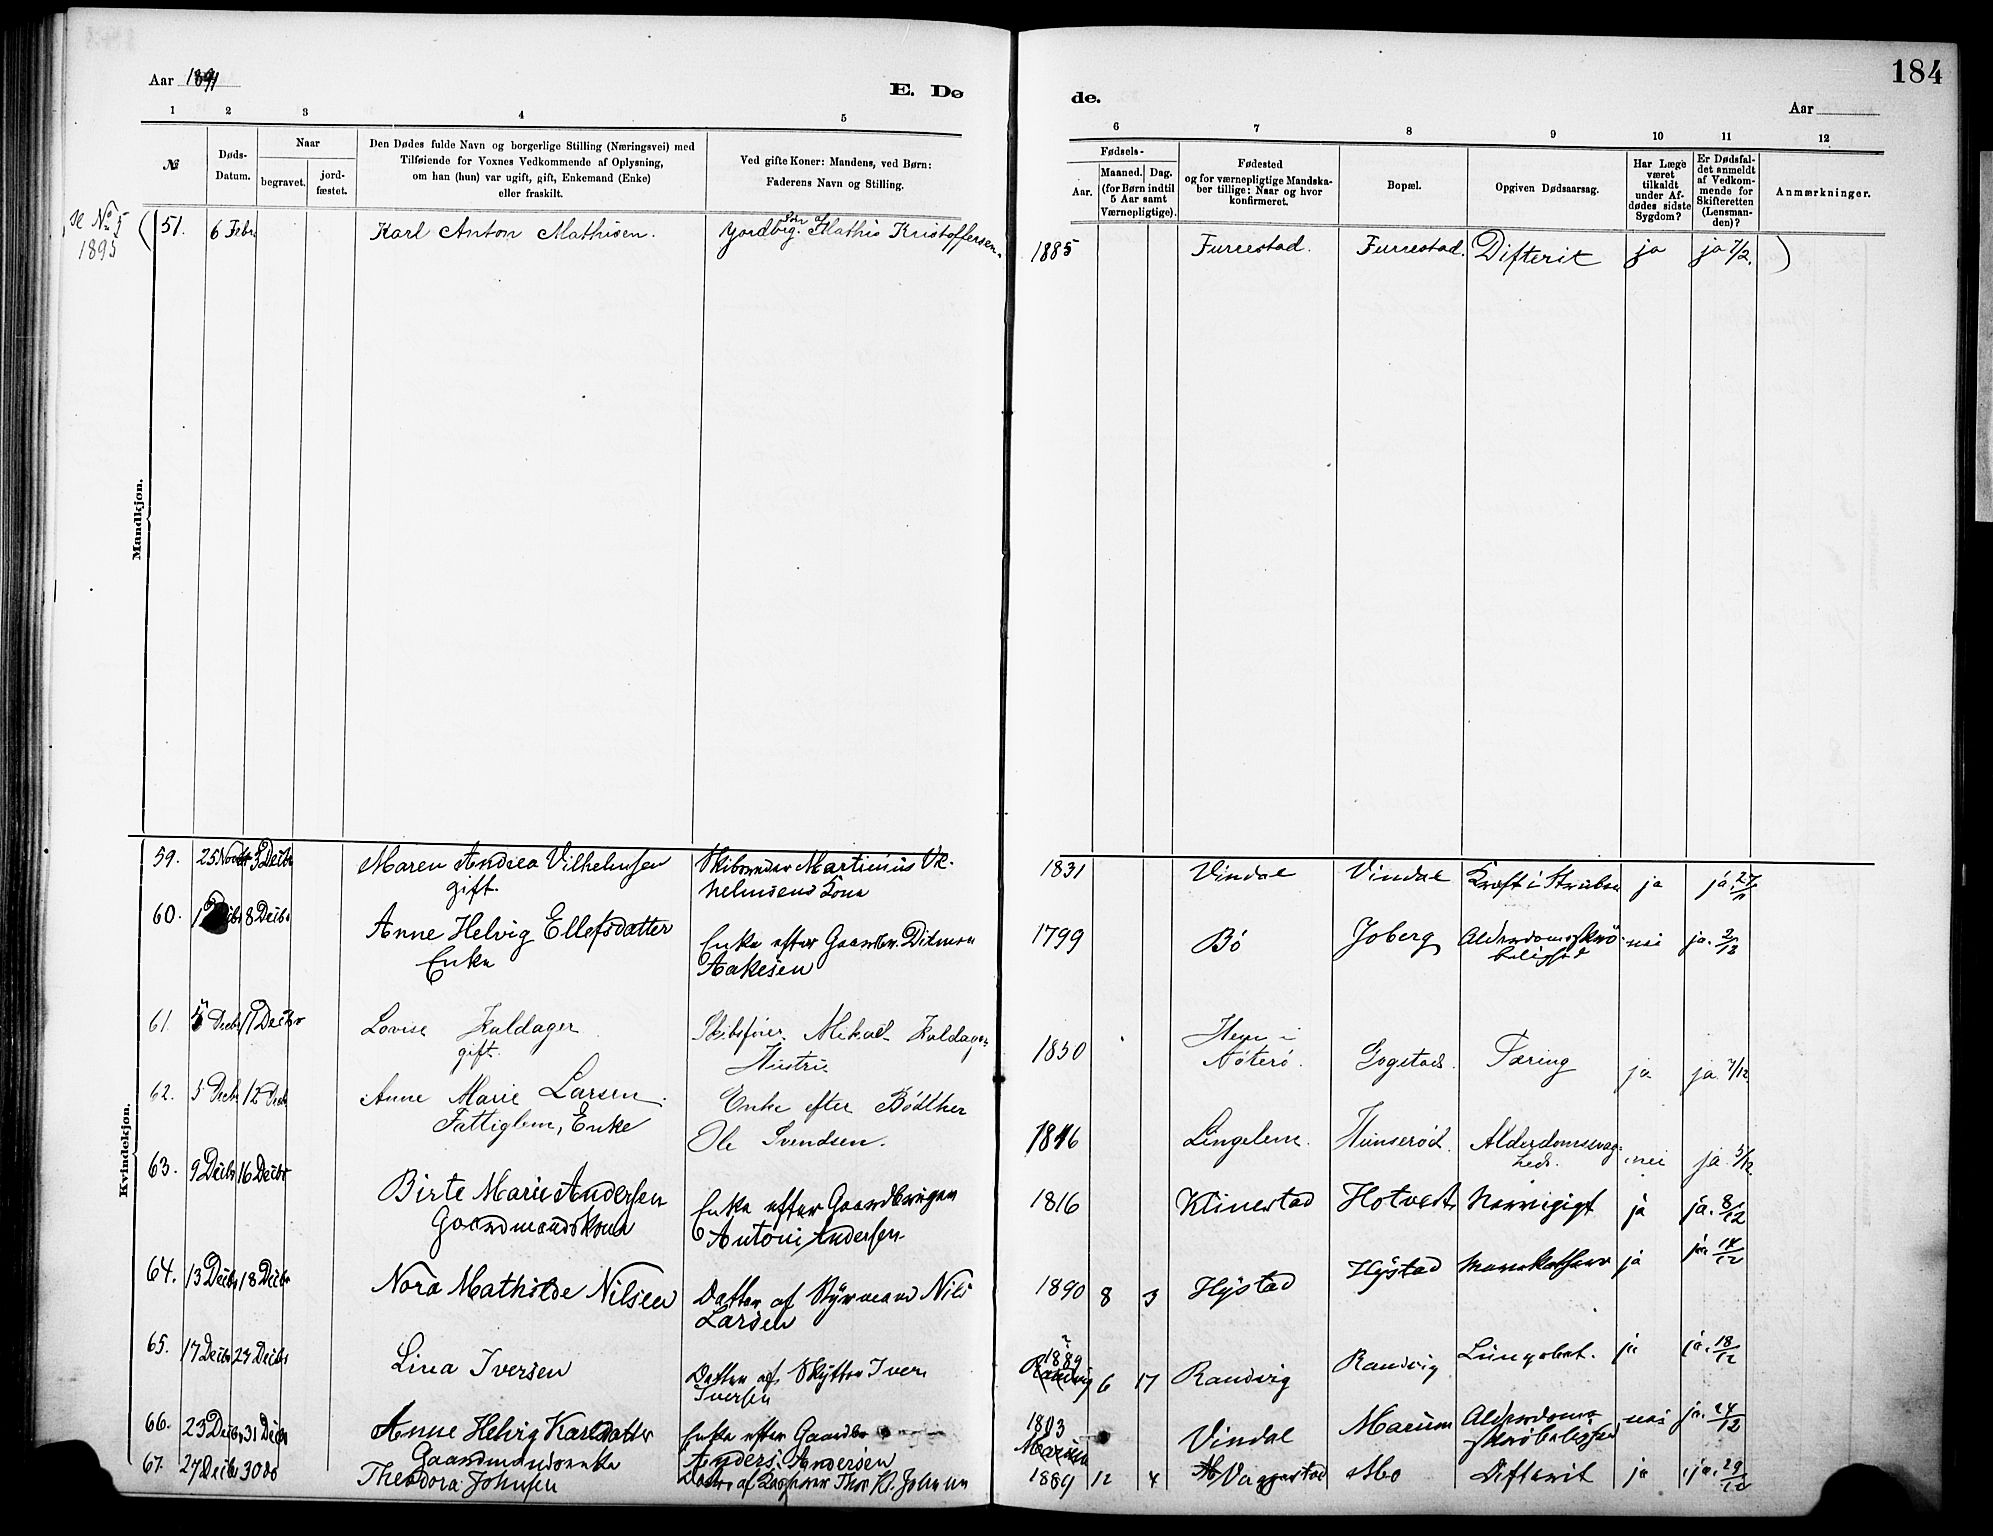 184
Aar 1891
E. Dø
de.
Aar
1 2 3 4 5
6 7 8 9 10 11 12
№
Døds-
Datum.
Naar
begravet.
jord-
fæstet.
Den Dødes fulde Navn og borgerlige Stilling (Næringsvei) med
Tilføiende for Voxnes Vedkommende af Oplysning,
om han (hun) var ugift, gift, Enkemand (Enke)
eller fraskilt.
Ved gifte Koner: Mandens, ved Børn:
Faderens Navn og Stilling.
Fødsels-
Aar.
Maaned. Dag.
(for Børn indtil
5 Aar samt
Værnepligtige).
Fødested
og for værnepligtige Mandska-
ber tillige: Naar og hvor
konfirmeret.
Bopæl.
Opgiven Dødsaarsag.
Har Læge
været
tilkaldt
under Af-
dødes sidste
Sygdom?
Er Dødsfal-
det anmeldt
af Vedkom-
mende for
Skifteretten
(Lensman-
den)?
Anmærkninger.
Mandkjøn.
se No 5
1895
( 51. 6 Febr. Karl Anton Mathisen. Mathis Kristoffersen. 1885 Furrestad. Furrestad. Difterit ja ja 7/2. )
Kvindekjøn.
59. 25 Novbr 3 Decbr Maren Andrea Vilhelmsen Martinius Vil- 1831 Vindal Vindal Kræft i Struben ja ja. 27/11
gift. helmsens Kone
60. 8 Decbr Anne Helvig Ellefsdatter Enke efter Gaardbr. Ditman 1799 Bö Joberg Alderdomsskrö- nei ja. 2/12
Enke Aakesen belighed
61. 5 Decbr 11 Decbr Lovise Kaldager Skibsförer Mikael Kaldagers 1850 Hem i
gift. Hustru Nöterö Gogstad Tæring ja ja 7/12
62. 5 Decbr 12 Decbr Anne Marie Larsen. Enke efter Bödker
Fattiglem, Enke Ole Svendsen. 1816 Lingelem. Hunseröd. Alderdomssvag-
hed. nei ja 5/12
63. 9 Decbr 16 Decbr Birte Marie Andersen Enke efter Gaardbrugen 1816 Klinestad Hotvedt Nervegigt ja ja. 8/12
Gaardmandskone Antoni Andersen
64. 13 Decbr 18 Decbr Nora Mathilde Nilsen Datter af Styrmand Nils 1890 8 3 Hystad Hystad ja ja. 14/12
Larsen
65. 17 Decbr 23 Decbr Lina Iversen Datter af Skytter Iver 1889 6 17 Randvig Randvig Lungebet. ja ja. 18/12
Iversen
66. 23 Decbr 31 Decbr Anne Helvig Karlsdatter Enke efter Gaardbr 1803 Vindal Marum Alderdoms- nei ja. 24/12
Gaardmandsenke Anders Andersen skröbelighed
67. 27 Decbr 30 do Theodora Johnsen Datter af Thor Kr. Johnsen 1889 12 4 Vaggestad Mo Difterit ja ja. 29/12